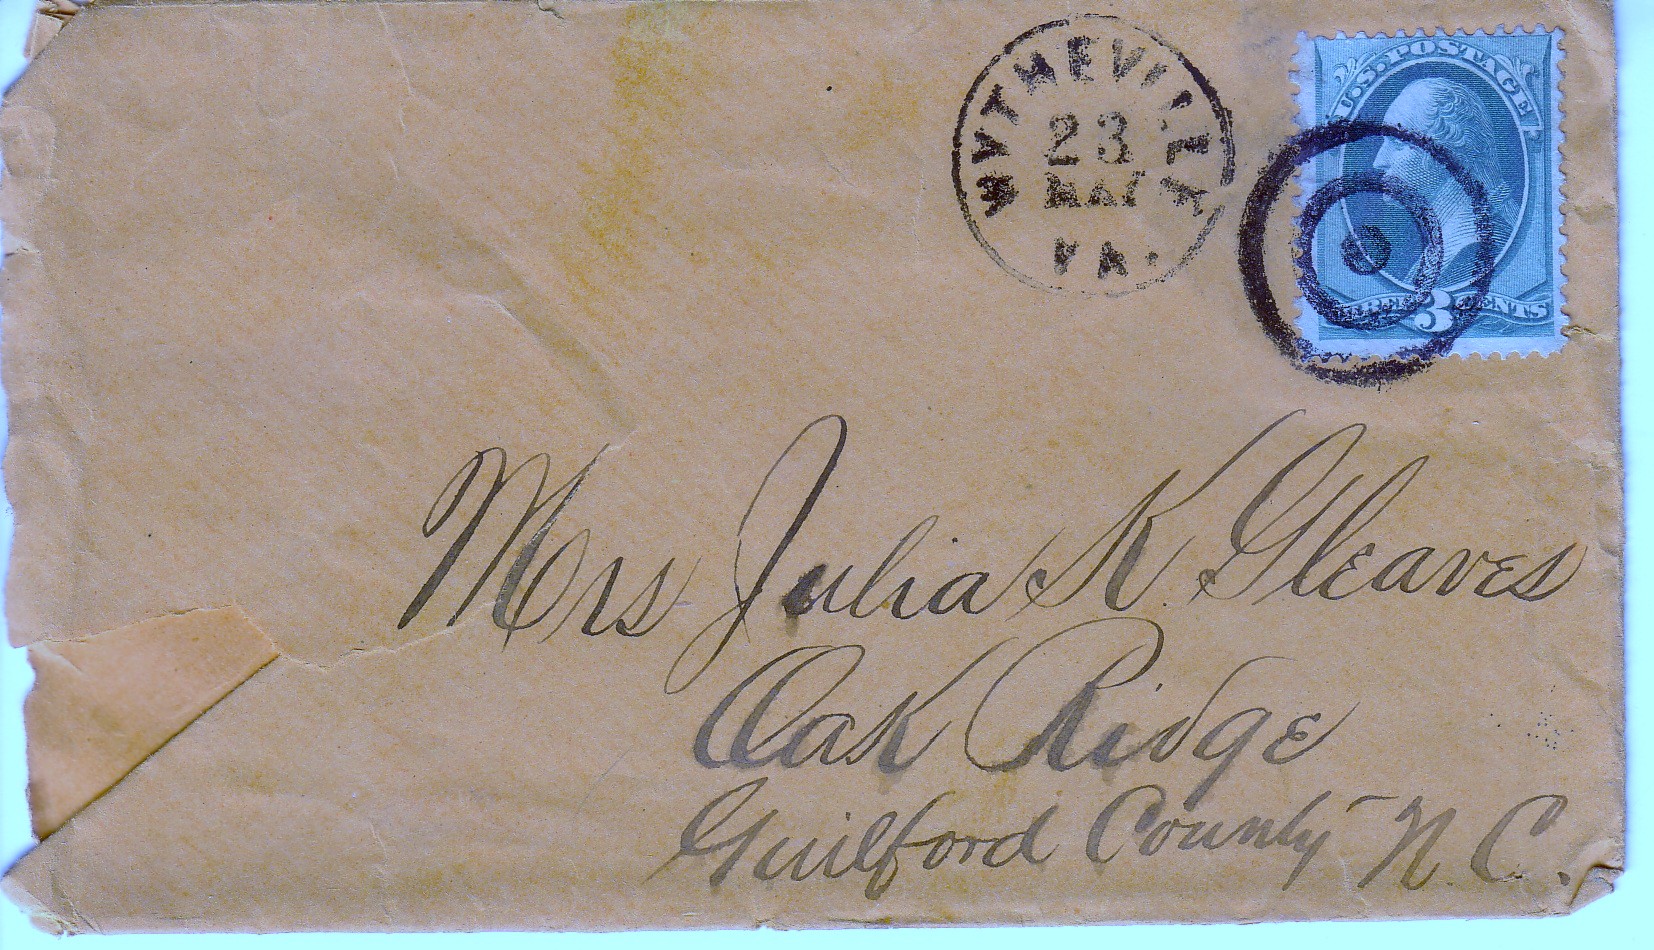 WYTHEVILLE
23
MAY
VA.
U.S. POSTAGE
THREE 3 CENTS
Mrs Julia K Gleaves
Oak Ridge
Guilford County N.C.